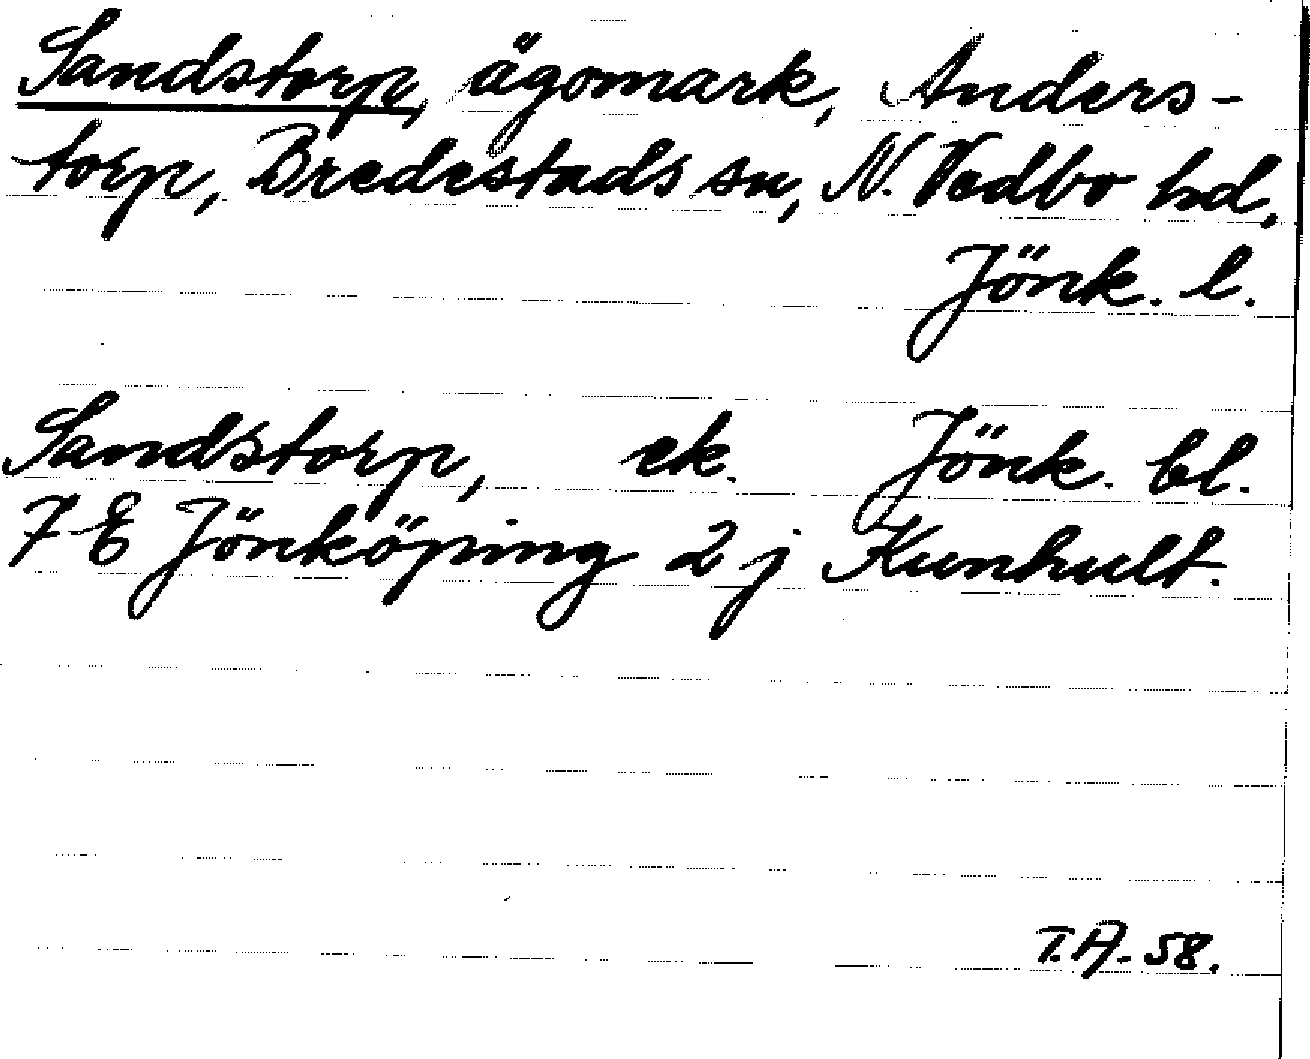 Sandstorp, ägomark, Anders-
torp, Bredestads sn, N. Vedbo hd.
Jönk. l.
Sandstorp, ek. Jönk. bl.
7 E Jönköping 2 j Kunhult.
T.A. 58.